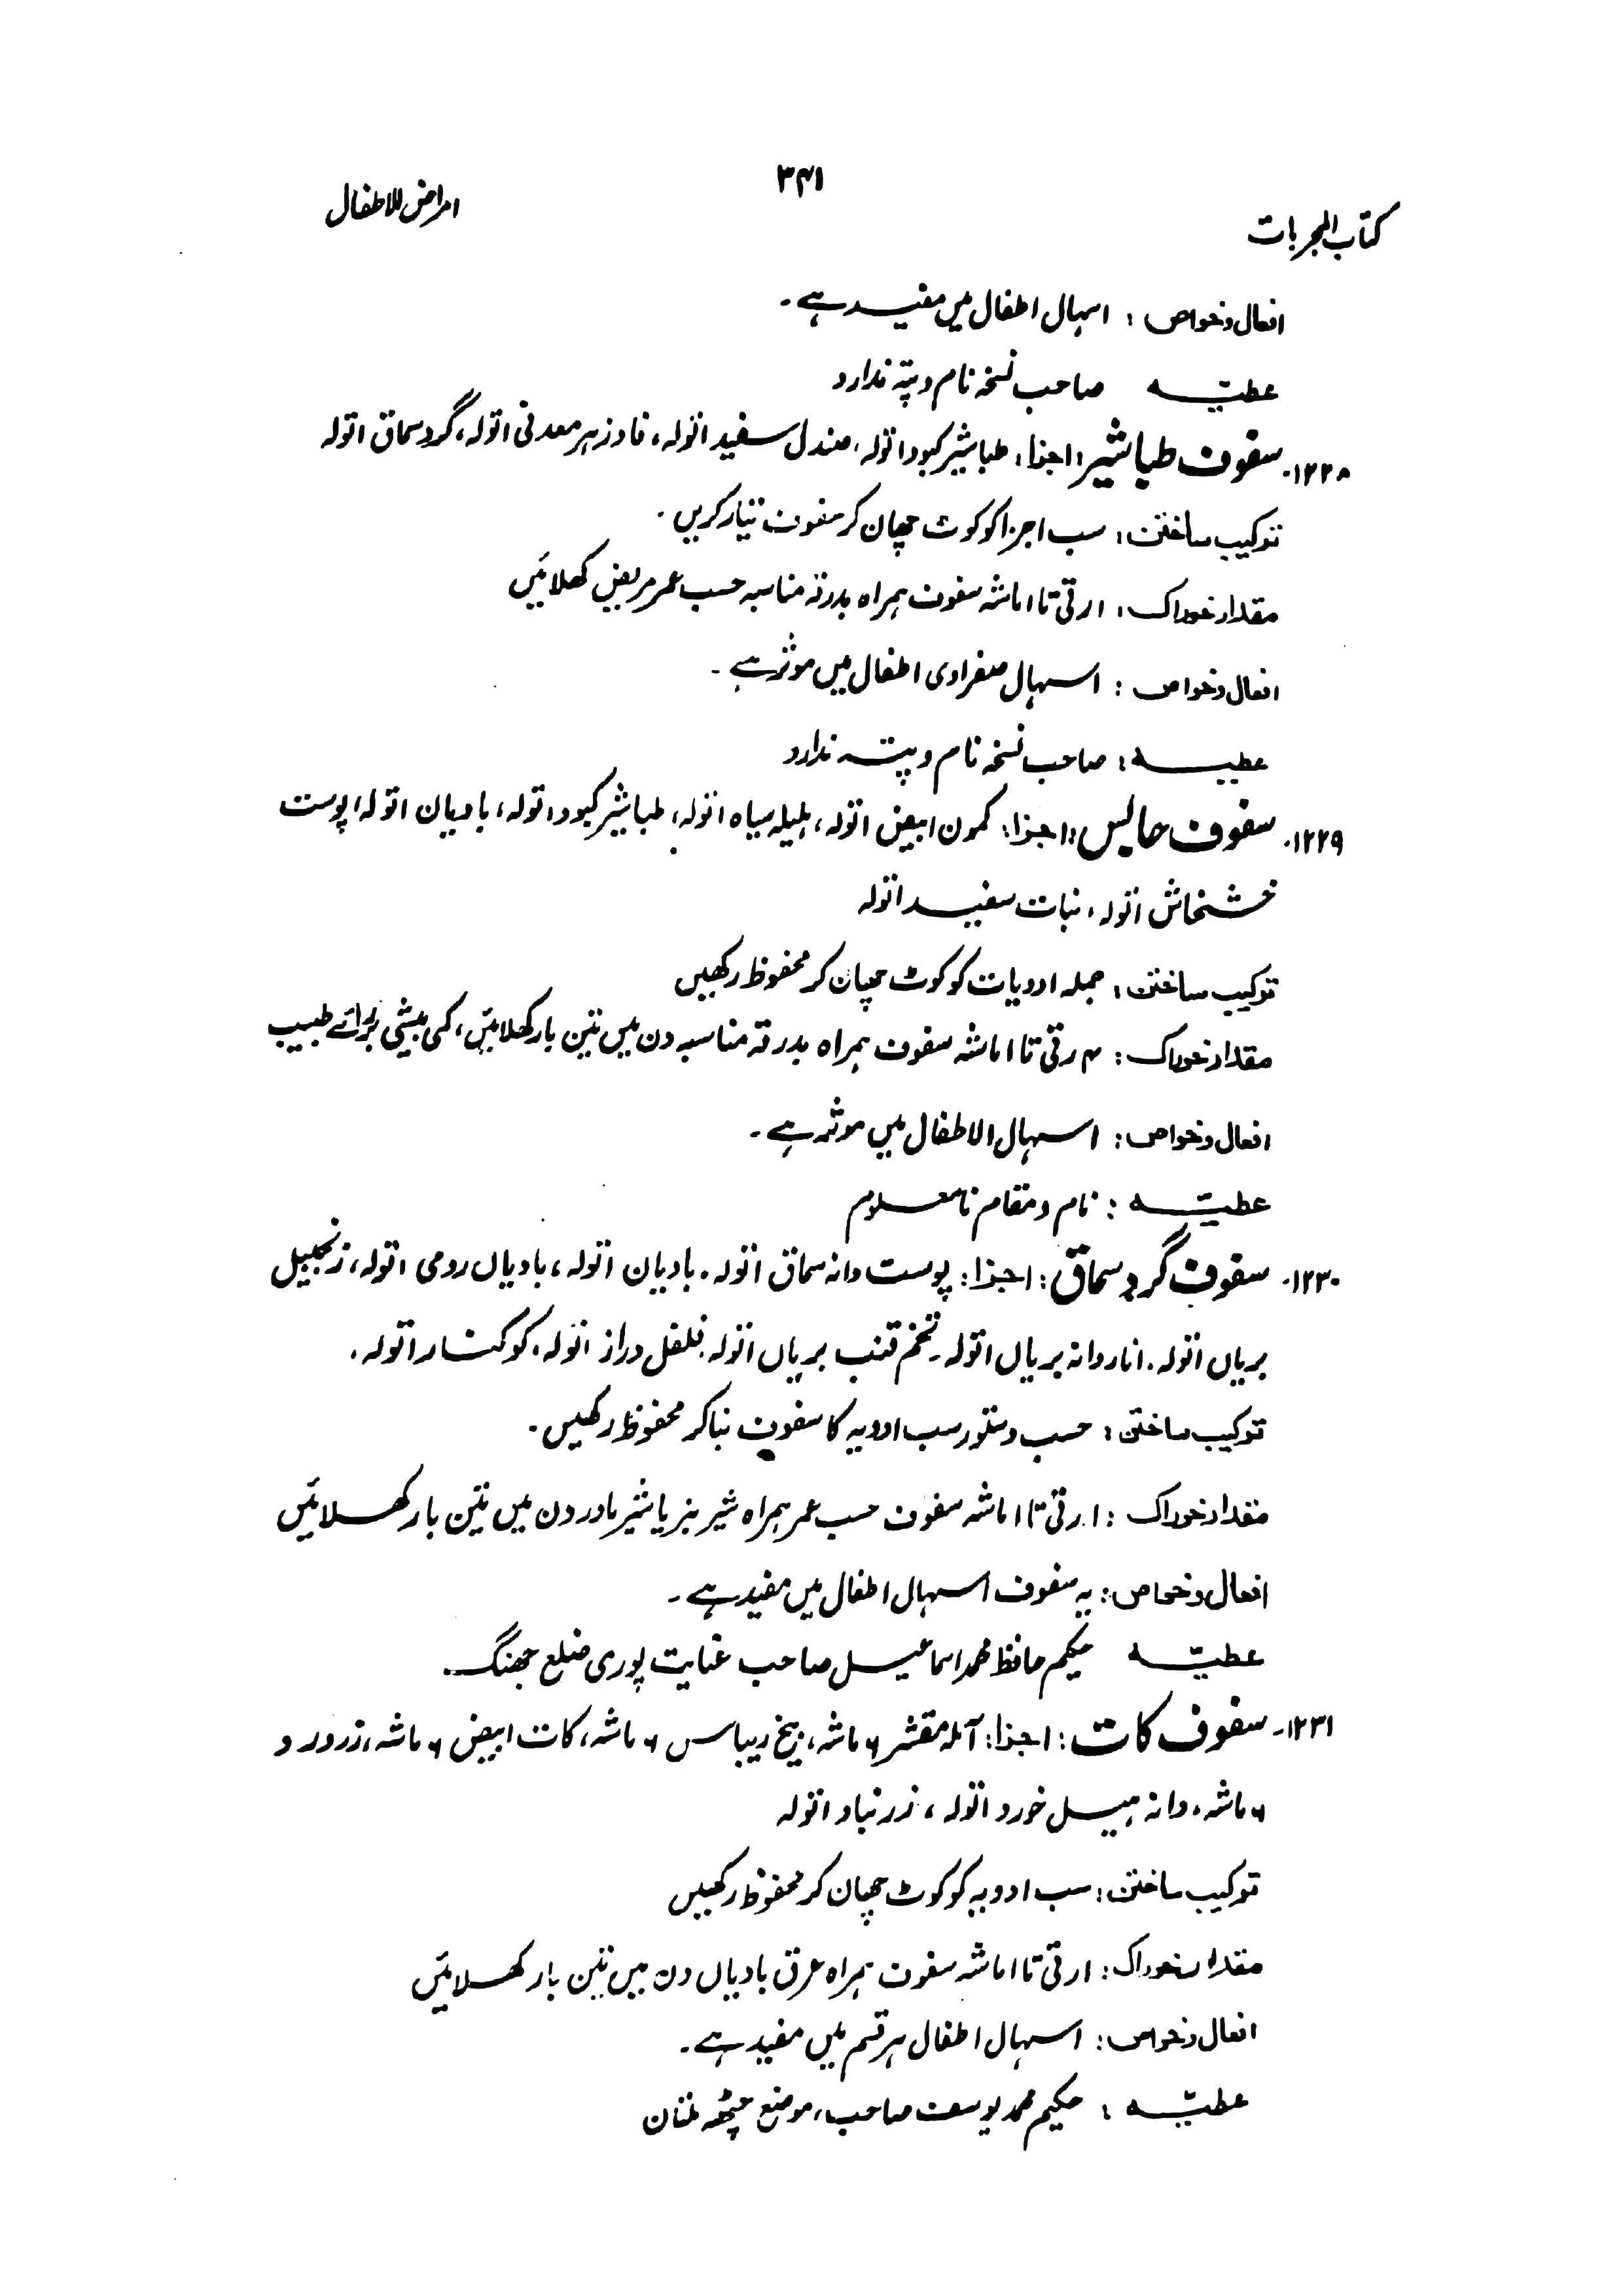 ۳۴۱
امراض للاطفال
کتاب المجربات
افعال و خواص : اسہال اطفال میں مفید ہے۔
عطیہ صاحب نسخہ نام و پتہ ندارد
۱۲۲۸۔ سفوف طباشیر : اجزا : طباشیر کبود ۱ تولہ، صندل سفید ۱ تولہ، فادزہر معدنی ۱ تولہ، گرد سماق ۱ تولہ
ترکیب ساختن : سب اجزا کو کوٹ چھان کر سفوف تیار کریں۔
مقدار خوراک : ۱ رتی تا ۱ ماشہ سفوف ہمراہ بدرقہ مناسبہ حسب عمر مریض کھلائیں
افعال و خواص : اسہال صفراوی اطفال میں موثر ہے۔
عطیہ : صاحب نسخہ نام و پتہ ندارد
۱۲۲۹۔ سفوف حابس : اجزا : کمون ابیض ۱ تولہ، ہلیلہ سیاہ ۱ تولہ، طباشیر کبود ۱ تولہ، بادیان ۱ تولہ، پوست
خشخاش ۱ تولہ، نبات سفید ۱ تولہ
ترکیب ساختن : جملہ ادویات کو کوٹ چھان کر محفوظ رکھیں
مقدار خوراک : ۴ رتی تا ۱ ماشہ سفوف ہمراہ بدرقہ مناسبہ دن میں تین بار کھلائیں، کمی بیشی برائے طبیب
افعال و خواص : اسہال الاطفال میں موثر ہے۔
عطیہ : نام و مقام نامعلوم
۱۲۳۰۔ سفوف گرد سماق : اجزا : پوست دانہ سماق ۱ تولہ۔ بادیان ۱ تولہ، بادیاں رومی ۱ تولہ، زنجبیل
بریاں ۱ تولہ۔ انار دانہ بریاں ۱ تولہ۔ تخم قنب بریاں ۱ تولہ۔ فلفل دراز ۱ تولہ، کوکنار ۱ تولہ۔
ترکیب ساختن : حسب دستور سب ادویہ کا سفوف بنا کر محفوظ رکھیں۔
مقدار خوراک : ۱ رتی تا ۱ ماشہ سفوف حسب عمر ہمراہ شیر بز یا شیر مادر دن میں تین بار کھلائیں
افعال و خواص : یہ سفوف اسہال اطفال میں مفید ہے۔
عطیہ حکیم حافظ محمد اسماعیل صاحب عنایت پوری ضلع جھنگ۔
۱۲۳۱۔ سفوف کات : اجزا : آملہ مقشر ۶ ماشہ، بیخ ریباس ۶ ماشہ، کات ابیض ۶ ماشہ، زرورد
۶ ماشہ، دانہ ہیل خورد ۱ تولہ، زرنباد ۱ تولہ
ترکیب ساختن : سب ادویہ کو کوٹ چھان کر محفوظ رکھیں
مقدار خوراک : ۱ رتی تا ۱ ماشہ سفوف ہمراہ عرق بادیاں دن میں تین بار کھلائیں
افعال و خواص : اسہال اطفال ہر قسم میں مفید ہے۔
عطیہ : حکیم محمد یوسف صاحب، موضع چٹھہ ملتان